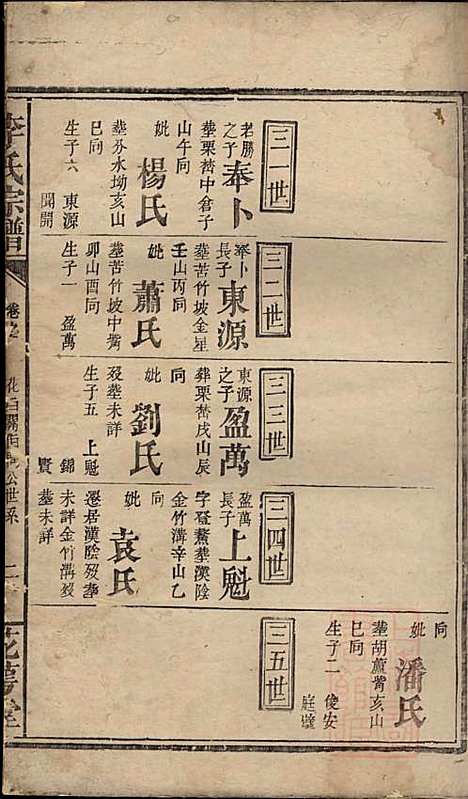 三一世
若勝之子
奉卜
葬栗樹中倉子
山午向
妣
楊氏
葬芬水坳亥山
巳向
生子六
東源
聞開
三二世
奉卜長子
東源
葬苦竹坡金星
壬山丙向
妣
蕭氏
葬苦竹坡中嘴
卯山酉向
生子一
盈萬
三三世
東源之子
盈萬
葬栗樹戌山辰
向
妣
劉氏
歿葬未詳
生子五
上魁
錦
賢
三四世
盈萬長子
上魁
葬漢陰
金竹溝辛山乙
向
妣
袁氏
遷居漢陰歿葬
未詳金竹溝歿
葬未詳
三五世
向
妣
潘氏
葬胡蘆嘴亥山
巳向
生子二
俊安
李氏宗譜
卷
世系
二